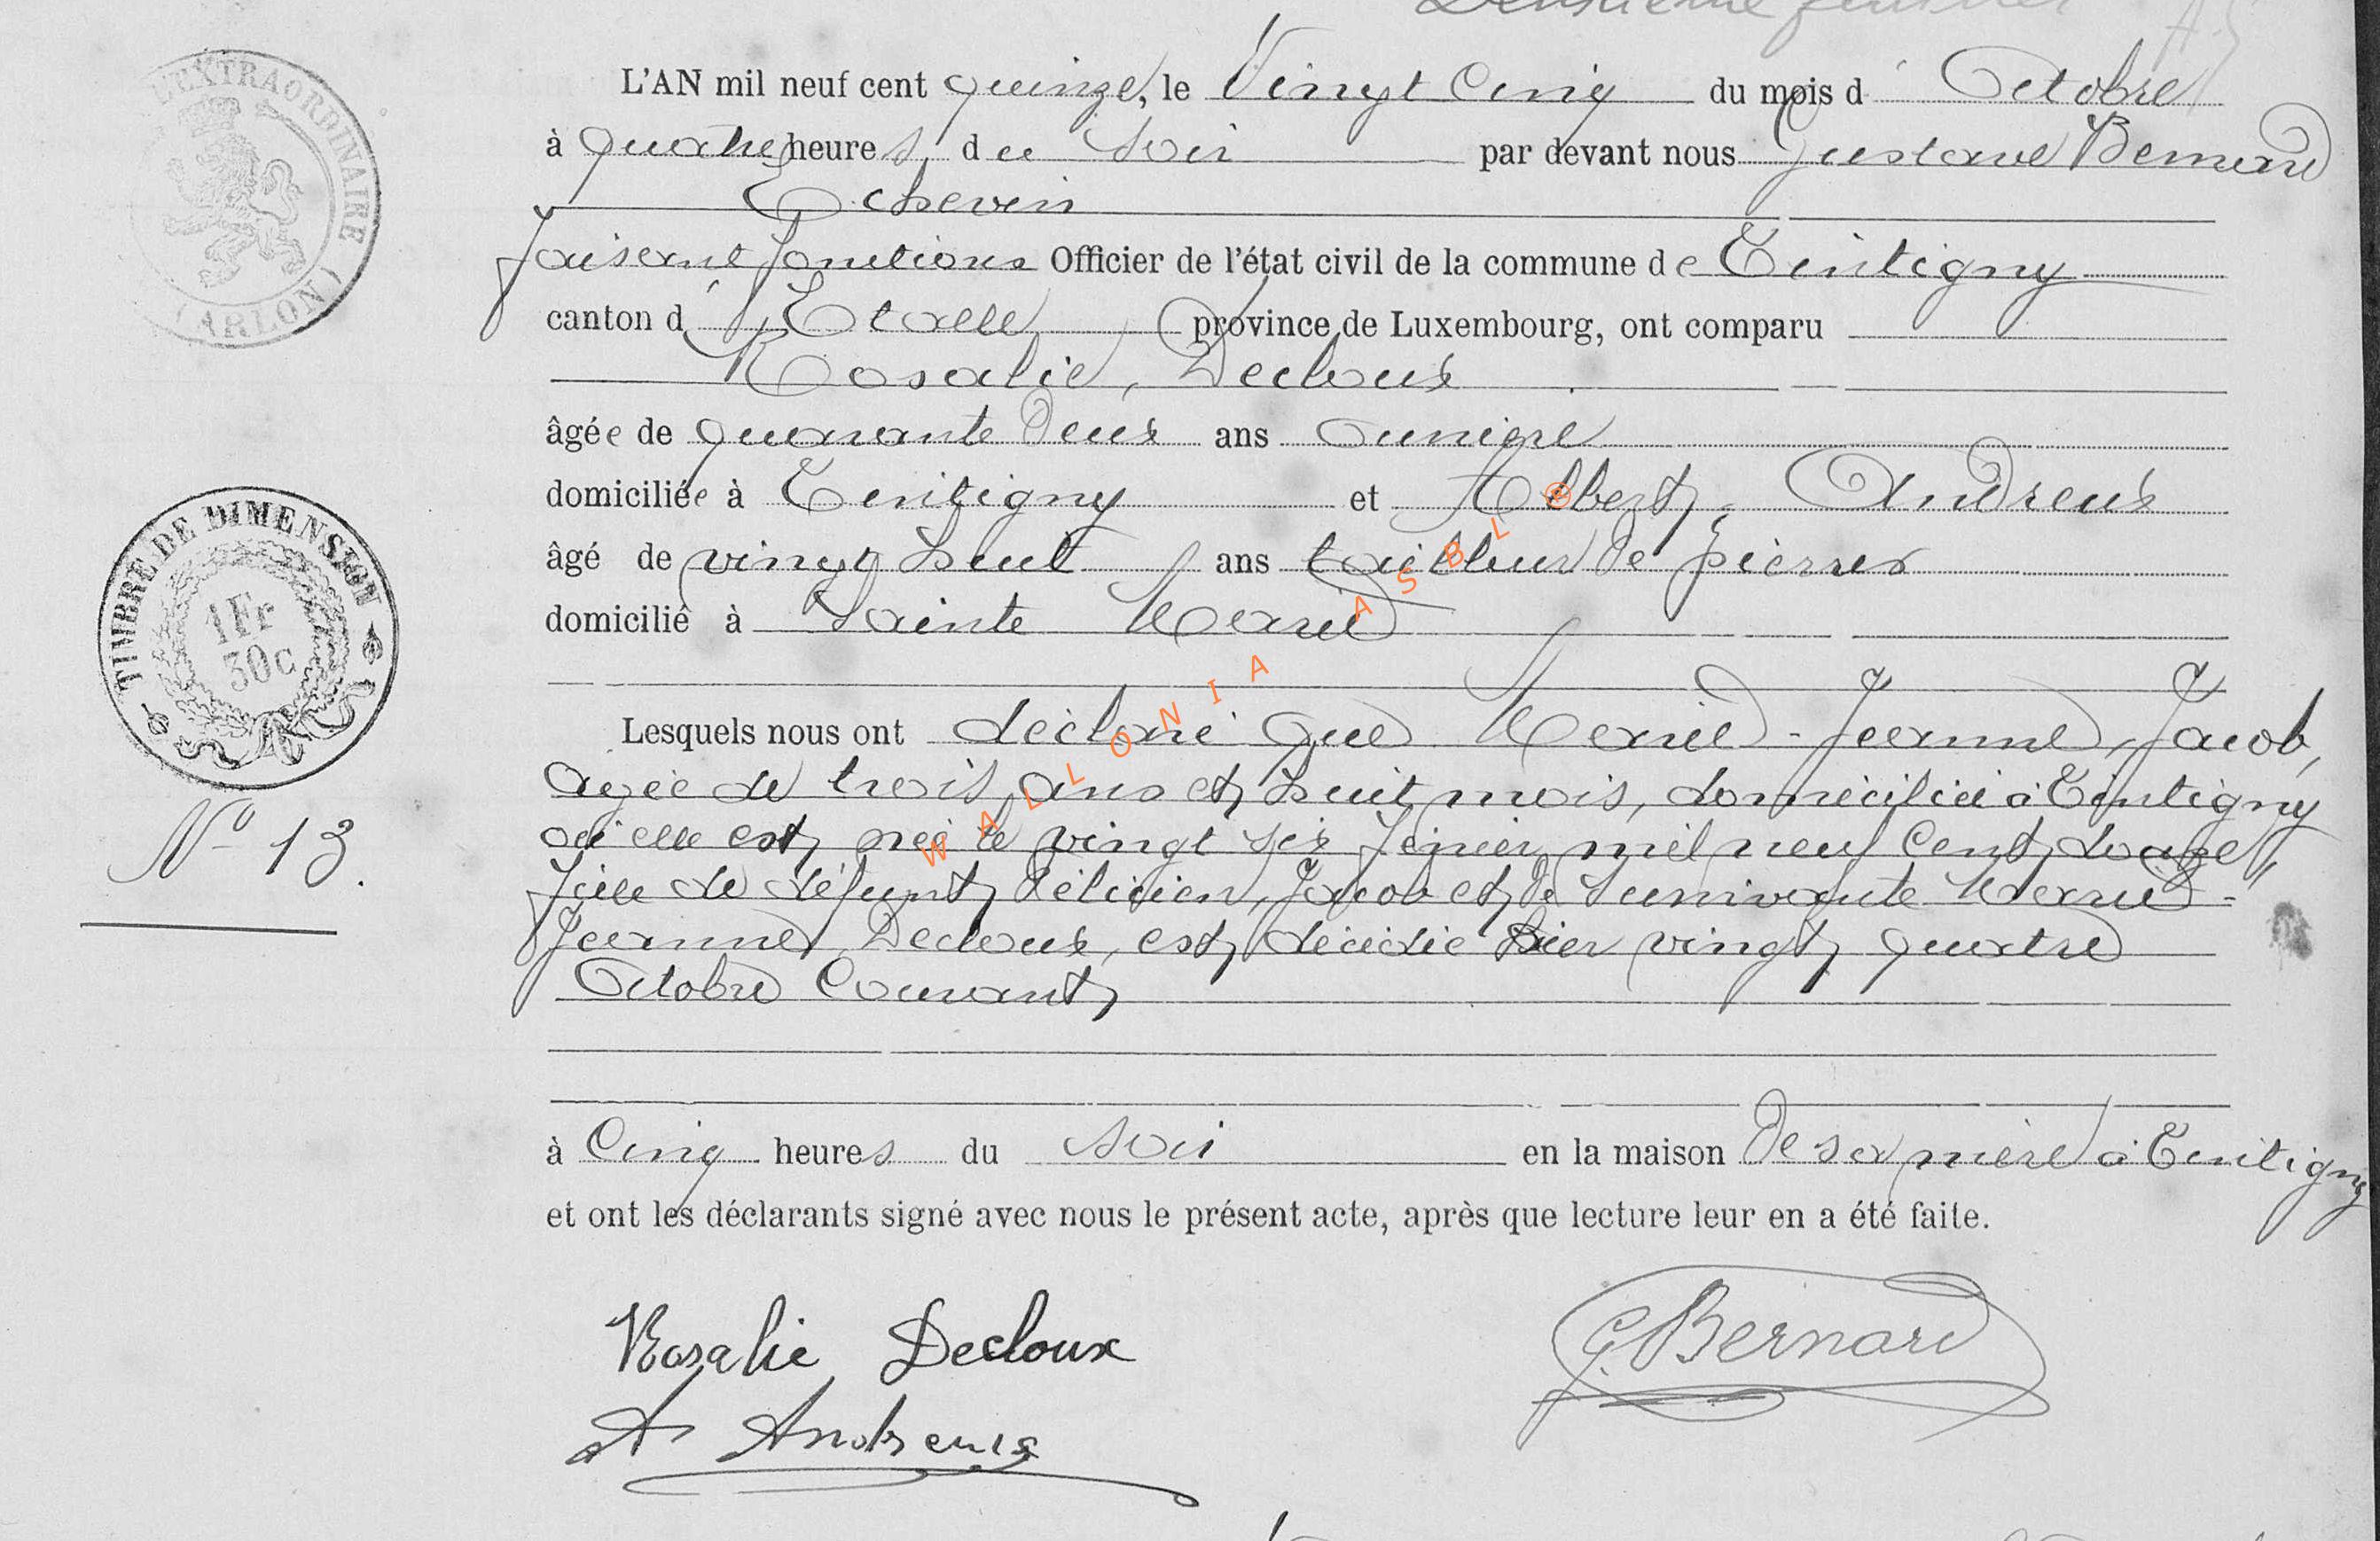 Deuxième feuillet
L'EXTRAORDINAIRE
(ARLON)
L'AN mil neuf cent quinze, le Vingt Cinq du mois d' Octobre
à quatre heures du Soir par devant nous Gustave Bernard
Echevin
faisant fonctions Officier de l'état civil de la commune de Tintigny
canton d' Etalle province de Luxembourg, ont comparu
Rosalie, Decloux
âgée de quarante Deux ans ouvrière
domiciliée à Tintigny et Albert, Andreux
âgé de vingt huit ans tailleur de pierres
domicilié à Sainte Marie
TIMBRE DE DIMENSION
1Fr
30c
Lesquels nous ont déclaré que Marie-Jeanne, Jacob,
agée de trois ans et huit mois, domiciliée à Tintigny
où elle est née le vingt six février mil neuf Cent douze,
N° 13.
fille de défunt Félicien, Jacob et de Survivante Marie-
Jeanne, Decloux, est décédée hier vingt quatre
Octobre Courant
à Cinq heures du Soir en la maison de sa mère à Tintigny
et ont les déclarants signé avec nous le présent acte, après que lecture leur en a été faite.
Rosalie Decloux
G. Bernard
A Andreux
WALLONIA ASBL ®